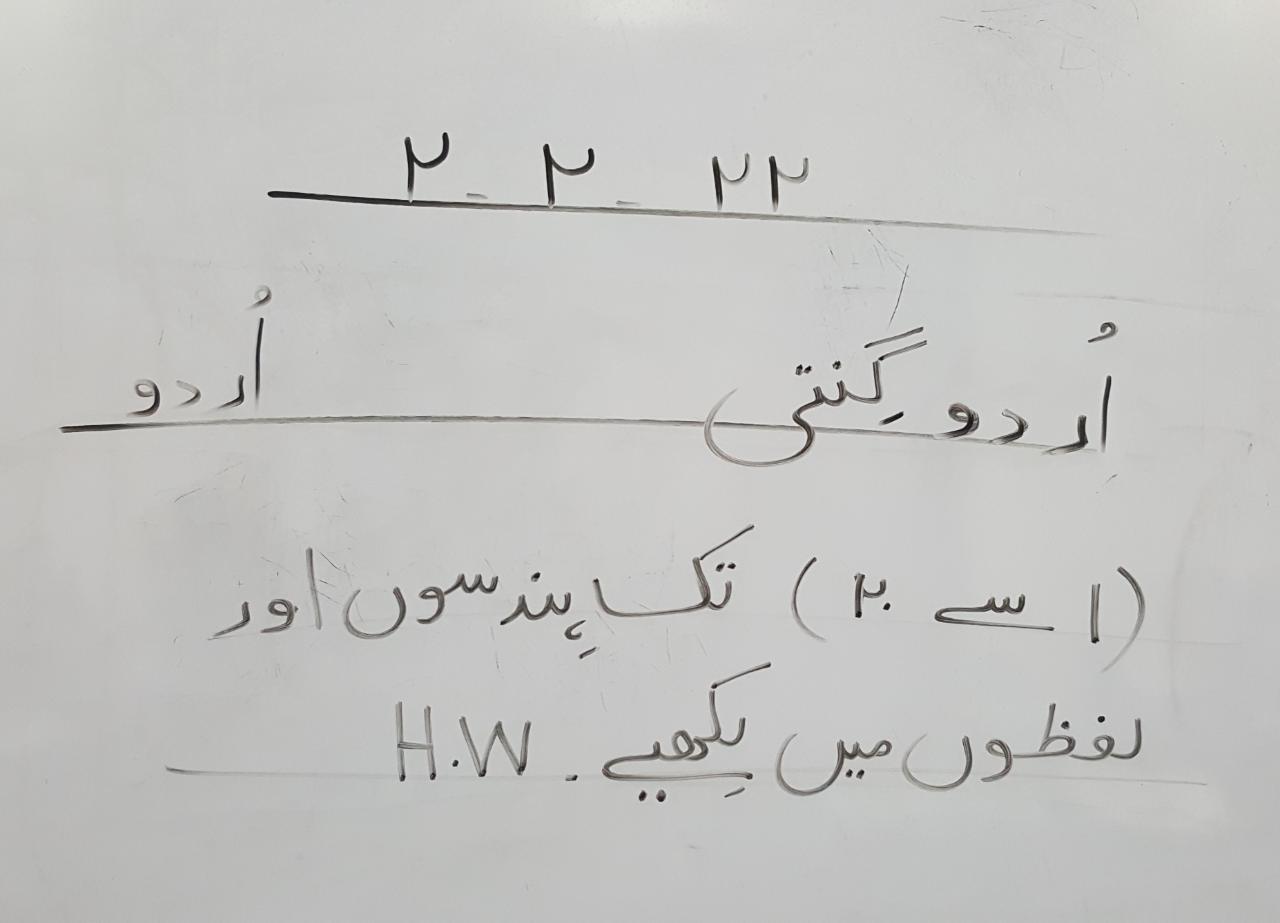 ۲-۲-۲۲
اُردو گِنتی اُردو
(۱ سے ۲۰) تک ہِندسوں اور
لفظوں میں لِکھیے۔ H.W